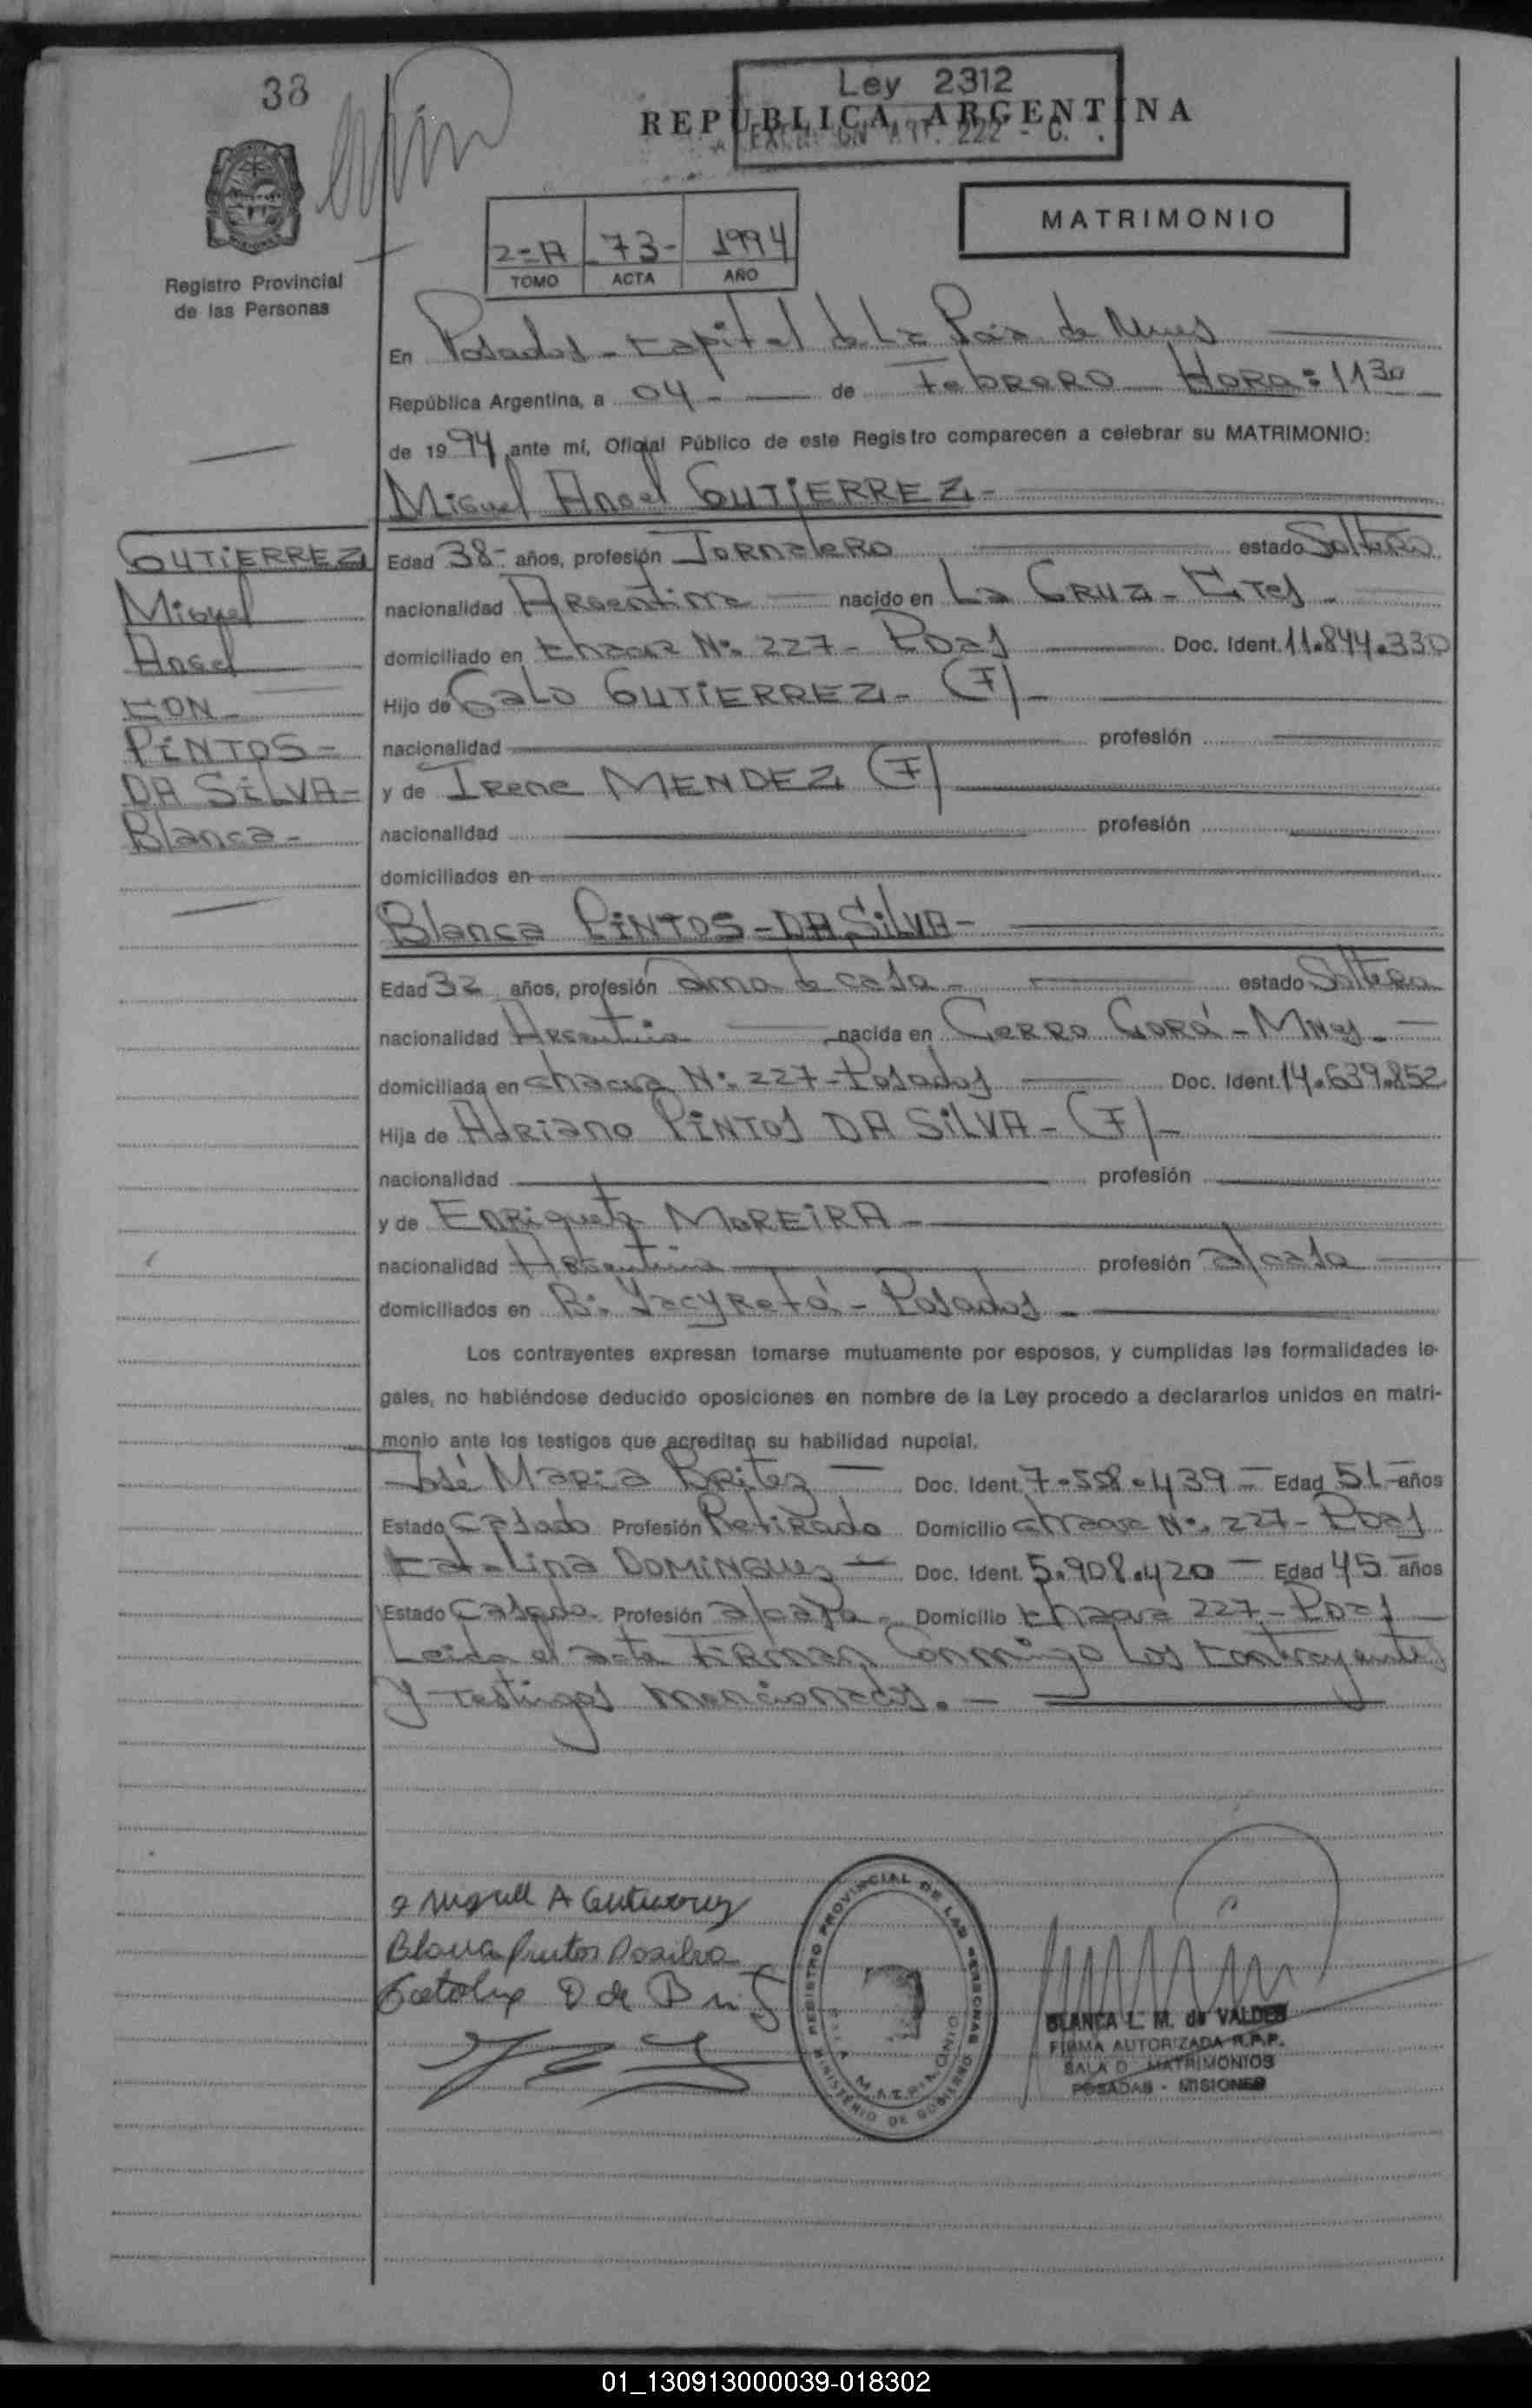 38
Ley 2312
REPUBLICA ARGENTINA
ART. 222 - C.
MATRIMONIO
2=A 73- 1994
TOMO ACTA AÑO
Registro Provincial
de las Personas
En Posadas - Capital de La de
República Argentina, a 04 - de Febrero Hora: 1130
de 1994 ante mí, Oficial Público de este Registro comparecen a celebrar su MATRIMONIO:
Miguel Angel GUTIERREZ -
GUTIERREZ
Miguel
Angel
CON -
PINTOS -
DA SILVA -
Blanca -
Edad 38 - años, profesión Jornalero estado Soltero
nacionalidad Argentina nacido en La CRUZ - Ctes -
domiciliado en chacra Nº 227 - Pdas Doc. Ident. 11.844.330
Hijo de Galo GUTIERREZ - (F) -
nacionalidad profesión
y de Irene MENDEZ (F)
nacionalidad profesión
domiciliados en
Blanca PINTOS - DA SILVA -
Edad 32 años, profesión ama de casa - estado Soltera
nacionalidad Argentina nacida en Cerro Corá - Mnes -
domiciliada en chacra Nº 227 - Posadas Doc. Ident. 14.639.852
Hija de Adriano PINTOS DA SILVA - (F) -
nacionalidad profesión
y de Enriqueta MOREIRA -
nacionalidad Argentina profesión a/casa
domiciliados en Bº Yacyretá - Posadas -
Los contrayentes expresan tomarse mutuamente por esposos, y cumplidas las formalidades le-
gales, no habiéndose deducido oposiciones en nombre de la Ley procedo a declararlos unidos en matri-
monio ante los testigos que acreditan su habilidad nupcial.
José Maria Britez - Doc. Ident. 7.558.439 - Edad 51 - años
Estado Casado Profesión Retirado Domicilio chacra Nº 227 - Pdas
Catalina DOMINGUEZ - Doc. Ident. 5.908.420 - Edad 45 años
Estado Casada Profesión a/casa - Domicilio chacra 227 - Pdas
Leida el acta FIRMAN Conmigo Los Contrayentes
y testigos mencionados. -
Miguel A Gutierrez
Blanca Pintos Dasilva
D de
REGISTRO PROVINCIAL DE LAS PERSONAS
SALA MATRIMONIO
MINISTERIO DE GOBIERNO
BLANCA L. M. de VALDER
FIRMA AUTORIZADA R.P.P.
SALA D MATRIMONIOS
POSADAS - MISIONES
01_130913000039-018302